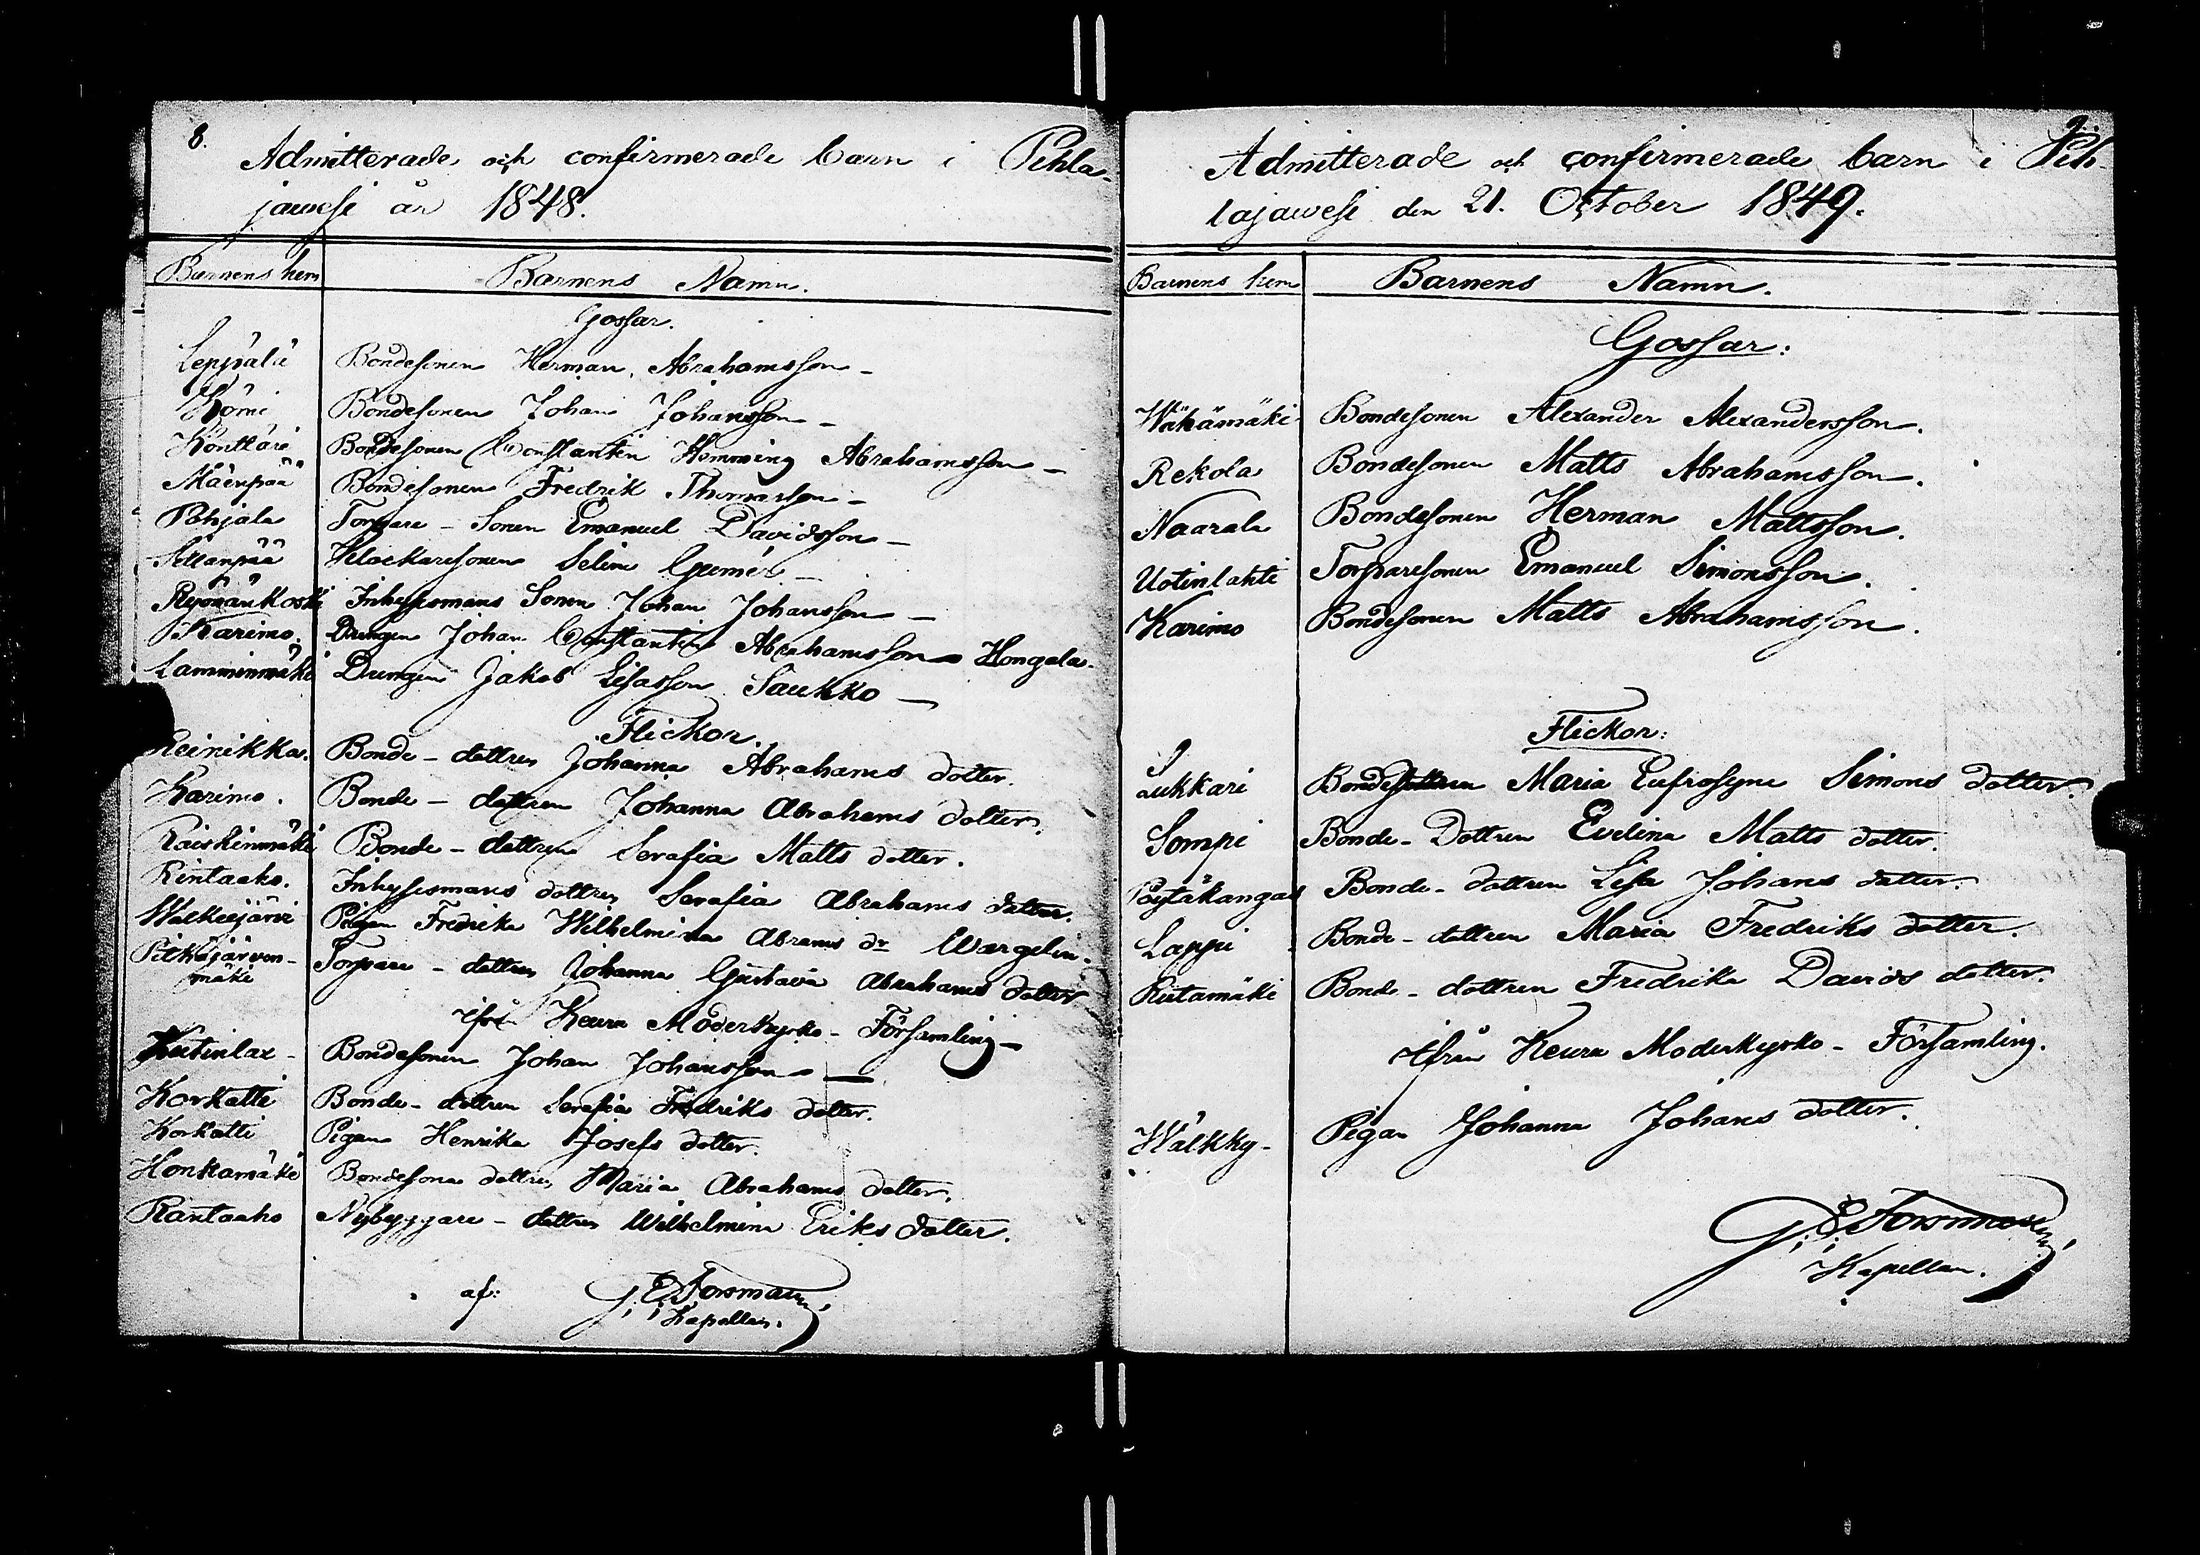 8.
Admitterade och confirmerade barn i Pihla-
jawesi år 1848.
Barnens hem Barnens Namn.
Gossar.
Leppälä Bondesonen Herman Abrahamsson –
Kömi Bondesonen Johan Johansson –
Könttäri Bondesonen Constantin Hemming Abrahamsson –
Mäenpää Bondesonen Fredrik Thomasson –
Pohjala Torpare – Sonen Emanuel Davidsson –
Klockaresonen Selim –
Ryönänkoski Inhysesmans Sonen Johan Johansson –
Karimo. Drengen Johan Constantin Abrahamsson Hongela.
Lamminmäki Drengen Jakob Lisasson Saukko –
Flickor.
Reinikka. Bonde – dottren Johanna Abrahams dotter.
Karimo. Bonde – dottren Johanna Abrahams dotter.
Raiskinmäki Bonde – dottren Serafia Matts dotter.
Rintaaho. Inhysesmans dottren Serafia Abrahams dotter.
Walkeejärvi Pigan Fredrika Wilhelmina Abrams dr Wargelin.
Pitkäjärven- Torpare – dottren Johanna Gustava Abrahams dotter
mäki
ifrån Keuru Moderkyrko – Församling –
Bondesonen Johan Johansson –
Korkatti Bonde – dottren Serafia Fredriks dotter.
Korkatti Pigan Henrika Josefs dotter.
Honkamäki Bondesons dottren Maria Abrahams dotter.
Rantaaho Nybyggare – dottren Wilhelmina Eriks dotter.
af: G. E. Forsman,
Kapellan.
9.
Admitterade och confirmerade barn i Pih-
lajawesi den 21. October 1849.
Barnens hem Barnens Namn.
Gossar:
Wähämäki Bondesonen Alexander Alexandersson.
Rekola Bondesonen Matts Abrahamsson.
Naarala Bondesonen Herman Mattsson.
Uotinlahti Torparesonen Emanuel Simonsson.
Karimo Bondesonen Matts Abrahamsson.
Flickor:
Lukkari Bondedottren Maria Eufrosyne Simons dotter.
Sompi Bonde – Dottren Evelina Matts dotter.
Pöytäkangas Bonde – dottren Lisa Johans dotter.
Lappi Bonde – dottren Maria Fredriks dotter.
Riitamäki Bonde – dottren Fredrika Davids dotter.
ifrån Keuru Moderkyrko – Församling.
Wälkky – Pigan Johanna Johans dotter.
G. E. Forsman,
Kapellan.